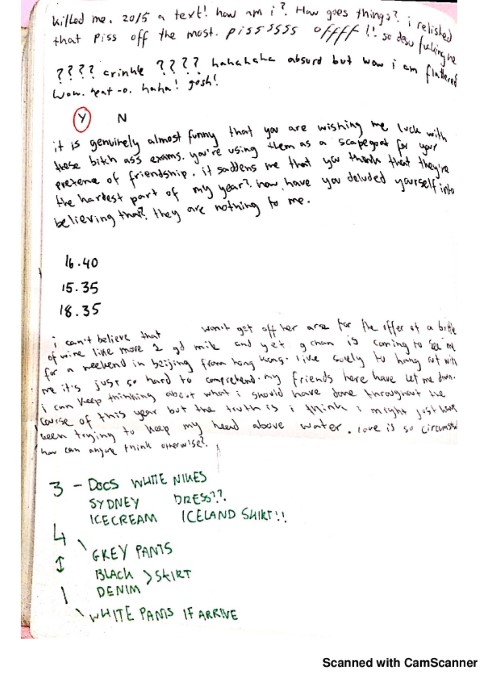 killed me. 20/5 a text! how am i? How goes things? i relished
that piss off the most. pissssss offfff!! so dew fucking me
???? crinkle ???? hahahaha absurd but wow i am flattered
wow. haha! gosh!
Y N
it is genuinely almost funny that you are wishing me luck with
these bitch ass exams. you're using them as a scapegoat for your
pretense of friendship. it saddens me that you think that they're
the hardest part of my year? how have you deluded yourself into
believing that? they are nothing to me.
16.40
15.35
18.35
i can't believe that won't get off her arse for the offer of a bottle
of wine like move 2 gd milk and yet g chan is coming to see me
for a weekend in beijing from hong kong. like surely to hang out with
me it's just so hard to comprehend. my friends here have let me down.
i can keep thinking about what i should have done throughout the
course of this year but the truth is i think i might just have
been trying to keep my head above water. love is so
how can anyone think otherwise?
3 - DOCS WHITE NIKES
SYDNEY DRESS??
ICECREAM ICELAND SHIRT!!
4
GREY PANTS
BLACK > SKIRT
1 DENIM
WHITE PANTS IF ARRIVE
Scanned with CamScanner